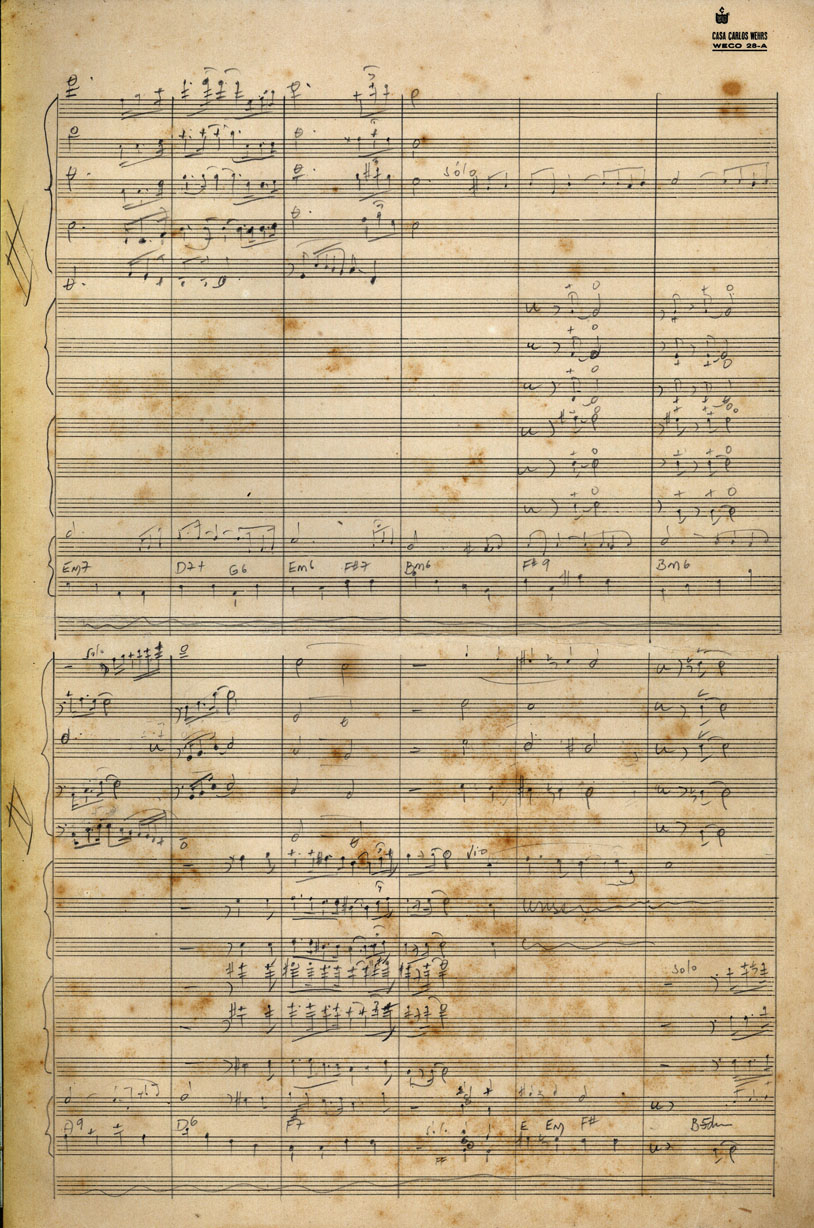 CASA CARLOS WEHRS
WECO 28-A
Solo
Em7 D7+ G6 Em6 F#7 Bm6 F#9 Bm6
Solo
Solo
A9 D6 F7 E Em F#